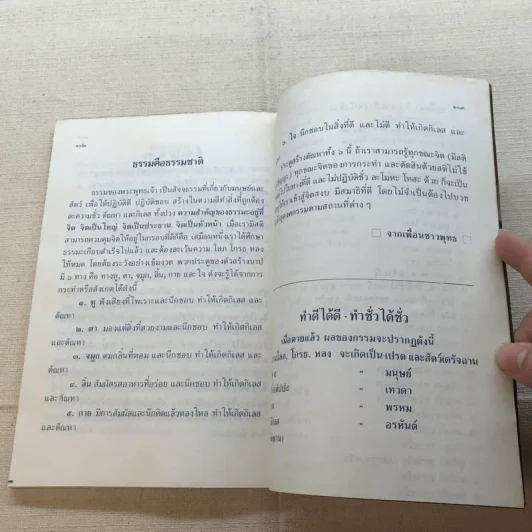 ๑๐๖
ธรรมคือธรรมชาติ
ธรรมของพระพุทธเจ้า เป็นสัจจธรรมที่เกี่ยวกับมนุษย์และ
สัตว์ เพื่อให้ปฏิบัติดี ปฏิบัติชอบ สร้างในความดีทำสิ่งที่ถูกต้อง
ละความชั่ว ตัณหา และกิเลส ทั้งปวง ความสำคัญของธรรมะอยู่ที่
จิต จิตเป็นใหญ่ จิตเป็นประธาน จิตเป็นหัวหน้า เมื่อเรามีสติ
สามารถควบคุมจิตให้อยู่ในกรอบที่ดีก็คือ เสมือนหนึ่งเราได้ศึกษา
ธรรมะเกือบสำเร็จไปแล้ว และต้องละเว้นความ โลภ โกรธ หลง
ให้หมด โดยต้องระวังอย่างเข้มงวด พวกประตูของตัวสร้างบาป
มี ๖ ทาง คือ ทางหู, ตา, จมูก, ลิ้น, กาย และใจ ดังจะรู้ได้จากการ
กระทำหรือสังเกตได้ดังนี้
๑. หู ฟังเสียงที่ไพเราะและนึกชอบ ทำให้เกิดกิเลส และ
ตัณหา
๒. ตา มองแต่สิ่งที่สวยงามและนึกชอบ ทำให้เกิดกิเลส
และตัณหา
๓. จมูก ดมกลิ่นที่หอม และนึกชอบ ทำให้เกิดกิเลส และ
ตัณหา
๔. ลิ้น ลิ้มรสอาหารที่อร่อย และนึกชอบ ทำให้เกิดกิเลส
และตัณหา
๕. กาย มีการสัมผัสและนึกคิดแล้วหลงใหล ทำให้เกิดกิเลส
และตัณหา
๑๐๗
๖ ใจ นึกชอบในสิ่งที่ดี และไม่ดี ทำให้เกิดกิเลส และ
ประตูสร้างตัณหาทั้ง ๖ นี้ ถ้าเราสามารถรู้ทุกขณะจิต (มีสติ
ทุกขณะจิตของการกระทำ และตัดสินด้วยสติไม่ใช้
ไปในทางที่ดี และไม่ปฏิบัติชั่ว ละโมหะ โทสะ ด้วย ก็จะเป็น
ให้เราเข้าสู่จิตสงบ มีสมาธิที่ดี โดยไม่จำเป็นต้องไปบวช
ตามสถานที่ต่าง ๆ
□ จากเพื่อนชาวพุทธ □
ทำดีได้ดี - ทำชั่วได้ชั่ว
เมื่อตายแล้ว ผลของกรรมจะปรากฏดังนี้
โลภ, โกรธ, หลง จะเกิดเป็น เปรต และสัตว์เดรัจฉาน
" มนุษย์
" เทวดา
" พรหม
" อรหันต์